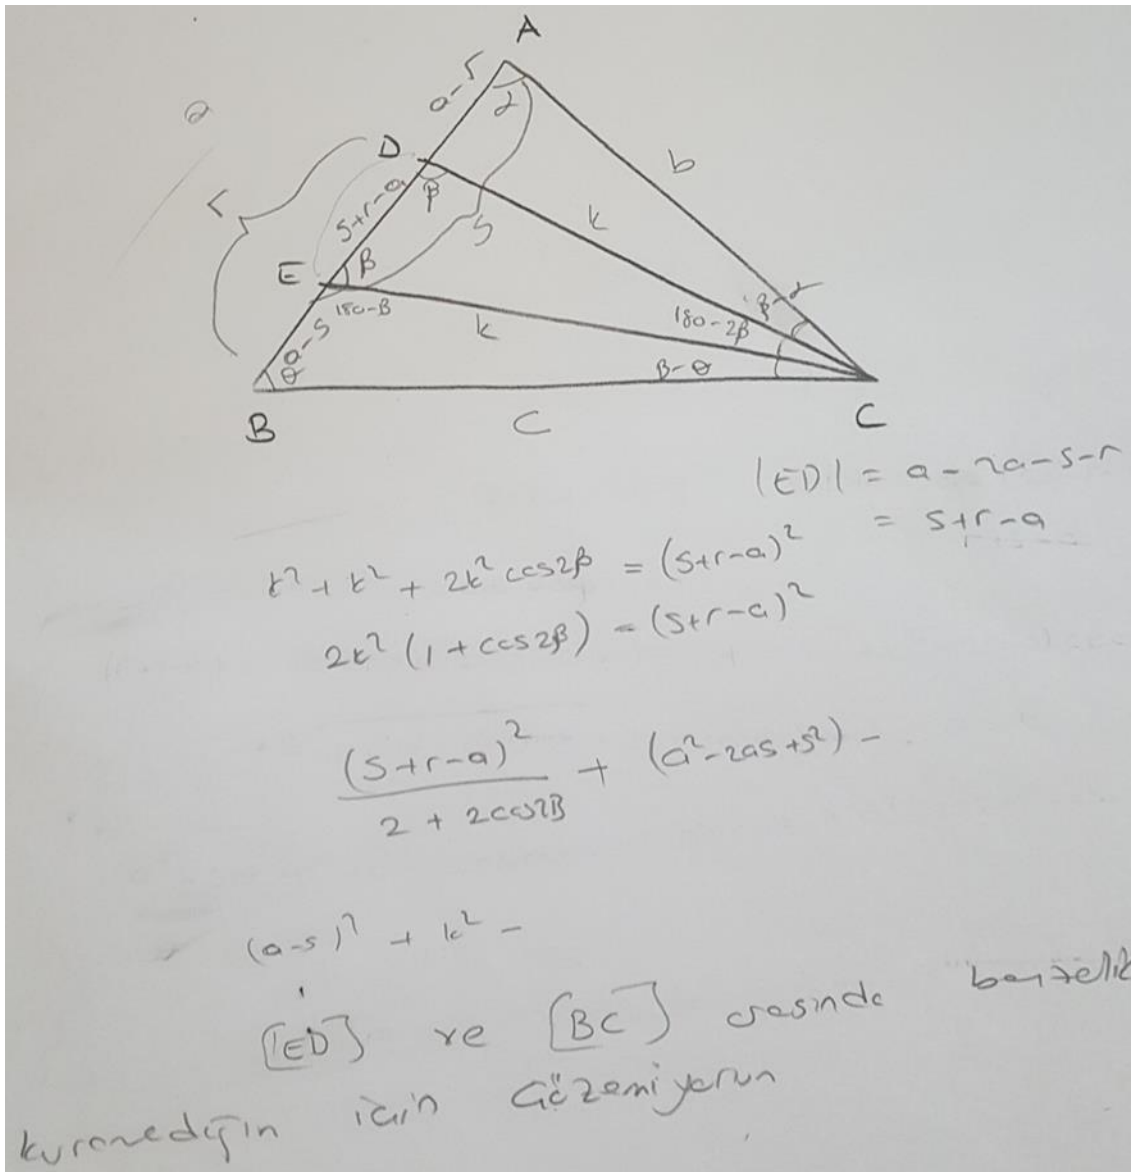 A
a-r
α
a
b
D
r
β
s+r-a
s
k
E
β
180-β
k
180-2β
β-α
a-s
θ
β-θ
B
C
C
|ED| = a-2a-s-r
= s+r-a
k² + k² + 2k² cos2β = (s+r-a)²
2k² (1+cos2β) = (s+r-a)²
(s+r-a)² / 2 + 2cos2β + (a²-2as+s²) -
(a-s)² + k² -
[ED] ve [BC] arasında
kuramadığın için çözemiyorum